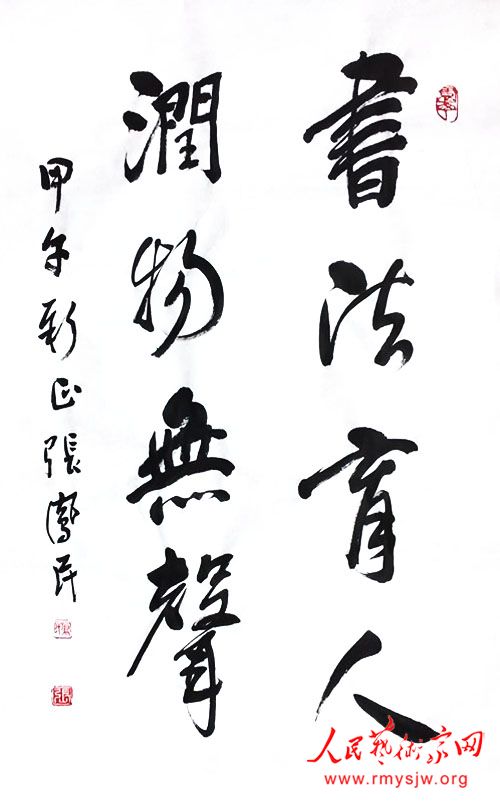 書法育人
潤物無聲
甲午新正張鳳民
人民藝術家网
www.rmysjw.org